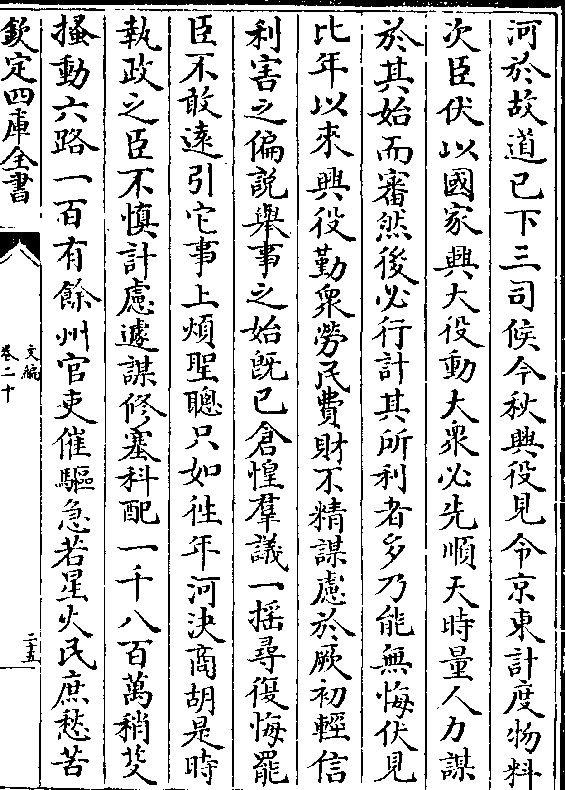 河於故道已下三司候今秋興役見令京東計度物料
次臣伏以國家興大役動大衆必先順天時量人力謀
於其始而審然後必行計其所利者多乃能無悔伏見
比年以來興役勤衆勞民費財不精謀慮於厥初輕信
利害之偏説舉事之始旣已倉惶羣議一揺尋復悔罷
臣不敢遠引它事上煩聖聰只如徃年河決商胡是時
執政之臣不慎計慮遽謀修塞科配一千八百萬稍芟
搔動六路一百有餘州官吏催驅急若星火民庶愁苦
欽定四庫全書
文編
卷二十
二十五